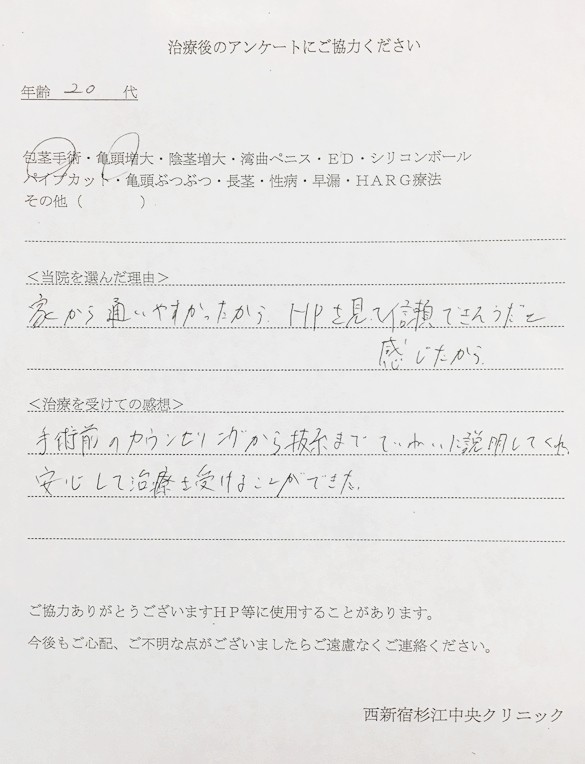 治療後のアンケートにご協力ください
年齢 20 代
包茎手術・亀頭増大・陰茎増大・湾曲ペニス・ED・シリコンボール
パイプカット・亀頭ぶつぶつ・長茎・性病・早漏・HARG療法
その他（　　　）
＜当院を選んだ理由＞
家から通いやすかったから。HPを見て信頼できそうだと
感じたから。
＜治療を受けての感想＞
手術前のカウンセリングから抜糸までていねいに説明してくれ、
安心して治療を受けることができた。
ご協力ありがとうございますHP等に使用することがあります。
今後もご心配、ご不明な点がございましたらご遠慮なくご連絡ください。
西新宿杉江中央クリニック